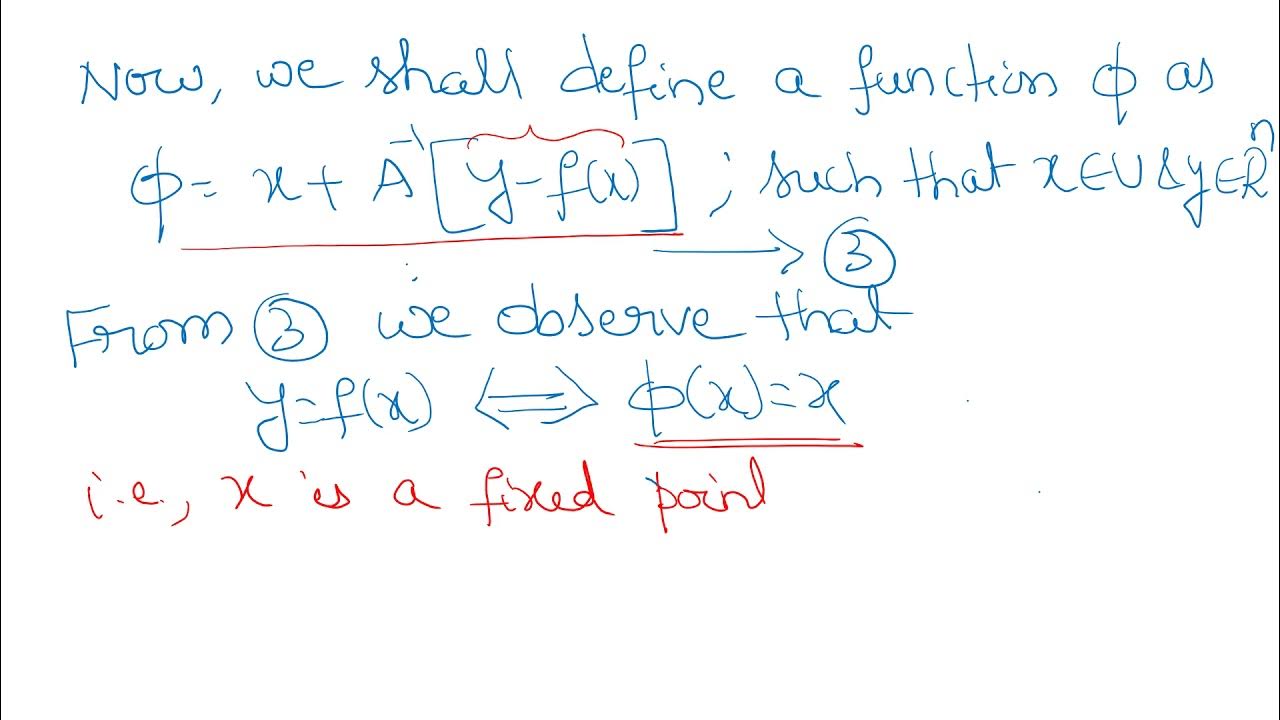 Now, we shall define a function ϕ as
ϕ = x + A⁻¹[y - f(x)] ; such that x ∈ U & y ∈ Rⁿ
⟶ ③
From ③ we observe that
y = f(x) ⟺ ϕ(x) = x
i.e., x is a fixed point